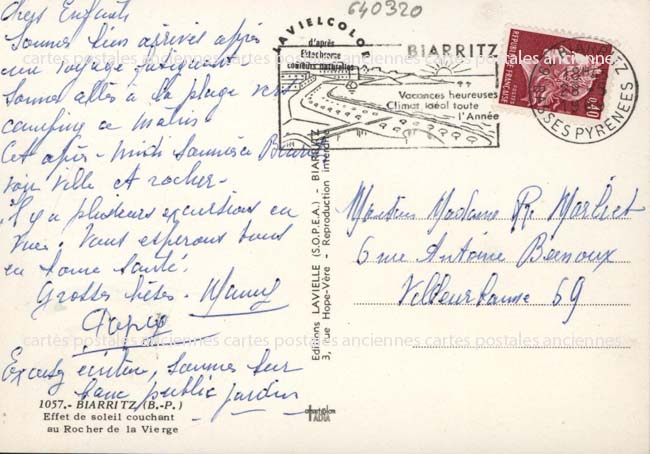 640320
Chers Enfants
Sommes bien arrivés après
un voyage fatiguant
Sommes allés à la plage
camping ce matin
Cet après-midi sommes à Biarritz
ville et rocher
Il y a plusieurs excursions en
vue. Vous espérons tous
en bonne santé.
Grosses bises - Mamy
Papy
Excusez écriture, sommes sur
banc public jardin
1057.- BIARRITZ (B.-P.)
Effet de soleil couchant
au Rocher de la Vierge
LAVIELCOLOR
d'après
Ektachrome
couleurs naturelles
Editions LAVIELLE (S.O.P.E.A.) - BIARRITZ
3, rue Hope-Vère - Reproduction interdite
BIARRITZ
Vacances heureuses
Climat idéal toute
l'Année
REPUBLIQUE FRANÇAISE
POSTES
0,40
BIARRITZ
BASSES PYRENEES
Monsieur Madame R. Morlict
6 rue Antoine
Villeurbanne 69
cartes postales anciennes cartes postales anciennes cartes postales anciennes
cartes postales anciennes cartes postales anciennes cartes postales anciennes